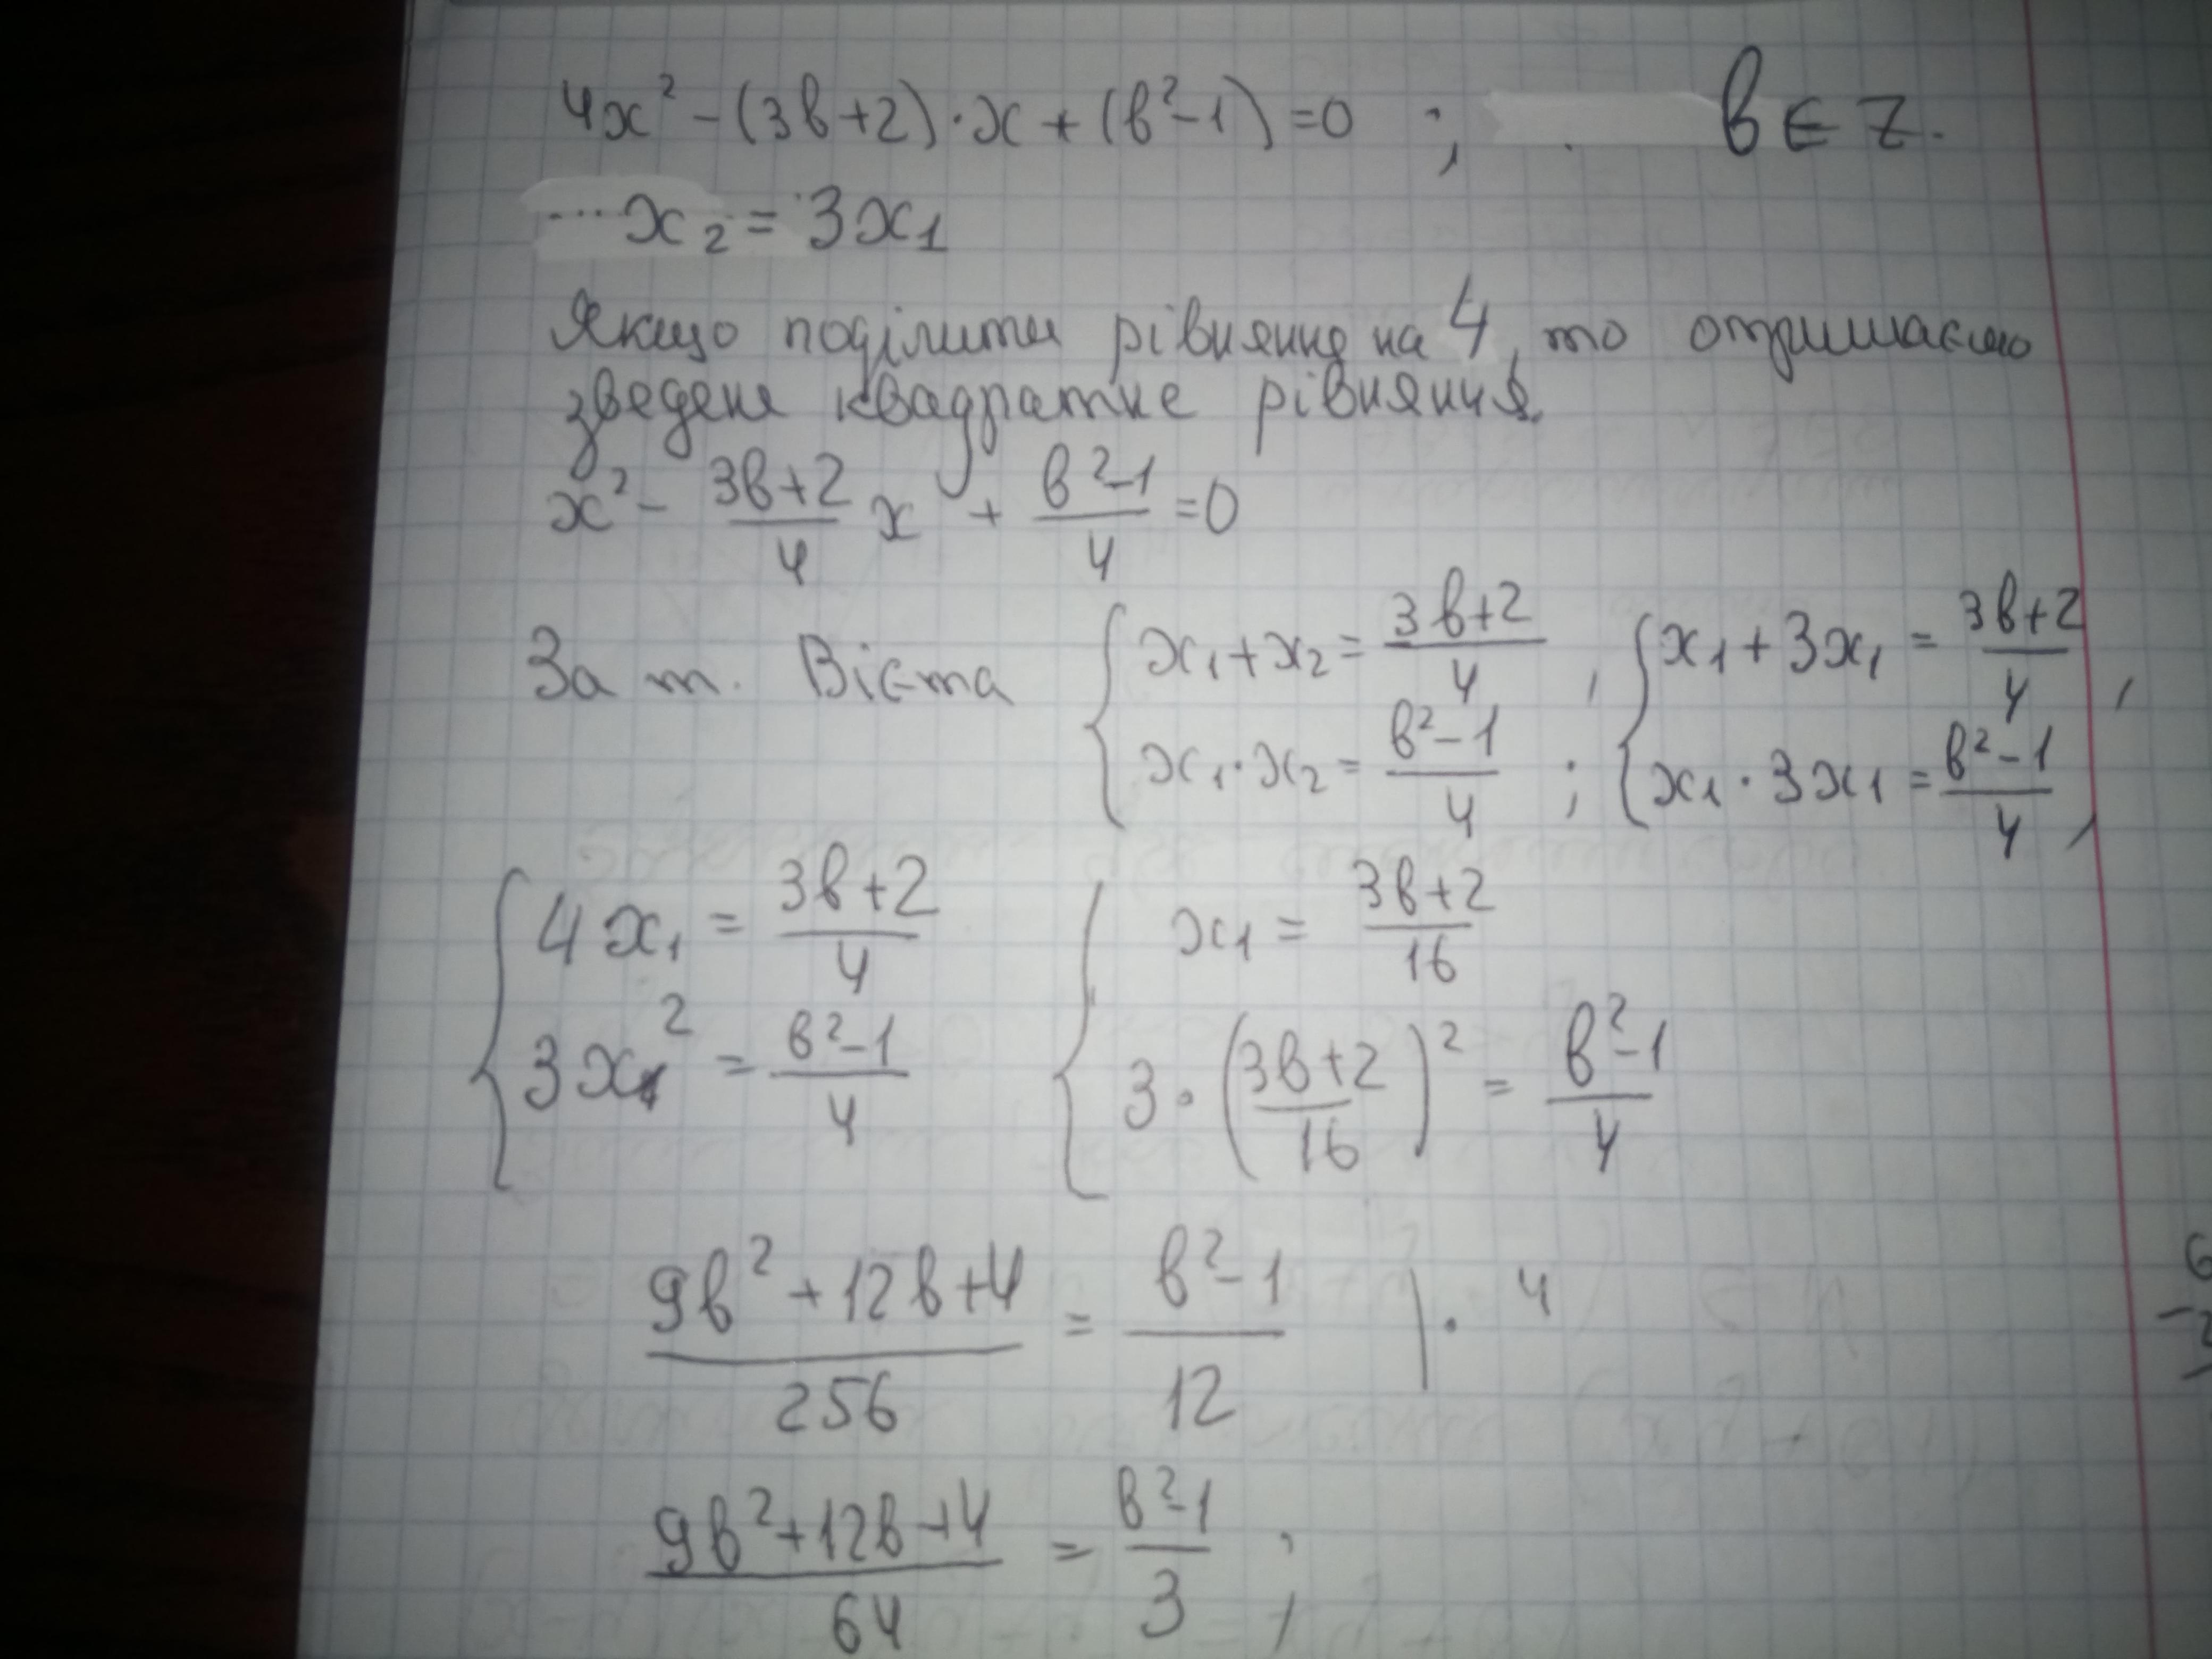 4x² - (3b+2)·x + (b²-1) = 0 ; b ∈ Z.
x₂ = 3x₁
Якщо поділити рівняння на 4, то отримаємо
зведене квадратне рівняння.
x² - (3b+2)/4 x + (b²-1)/4 = 0
За т. Вієта { x₁+x₂ = (3b+2)/4 , { x₁+3x₁ = (3b+2)/4 ,
x₁·x₂ = (b²-1)/4 ; x₁·3x₁ = (b²-1)/4 ,
{ 4x₁ = (3b+2)/4 { x₁ = (3b+2)/16
3x₁² = (b²-1)/4 3·((3b+2)/16)² = (b²-1)/4
(9b²+12b+4)/256 = (b²-1)/12 | · 4
(9b²+12b+4)/64 = (b²-1)/3 ;